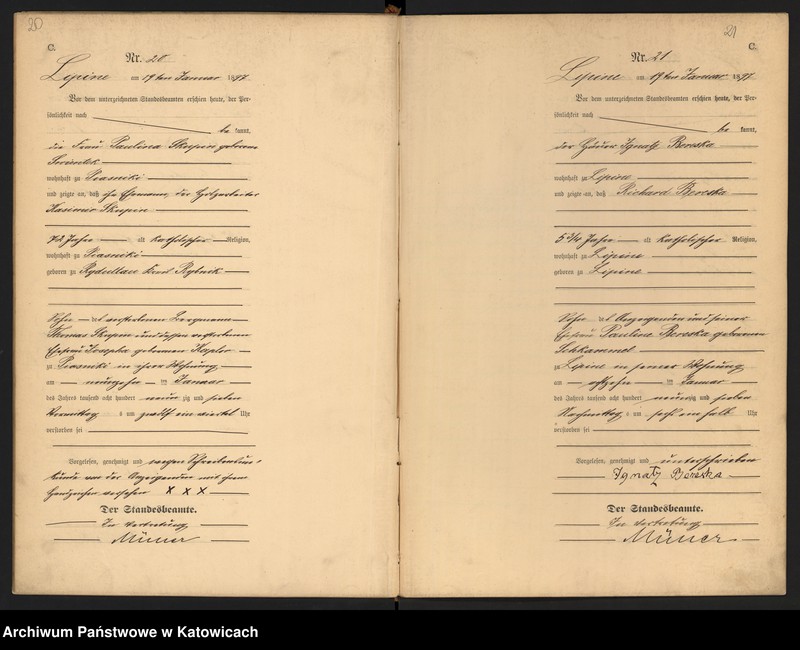 20
C.
Nr. 20
Lipine am 19ten Januar 1897.
Vor dem unterzeichneten Standesbeamten erschien heute, der Per-
sönlichkeit nach
be kannt,
die Frau Paulina Skupin geborene
wohnhaft zu Piasniki
und zeigte an, daß ihr Ehemann, der
Kasimir Skupin
72 Jahre alt katholischer Religion,
wohnhaft zu Piasniki
geboren zu Rydultau Kreis Rybnik
Sohn des verstorbenen Bergmann
Thomas Skupin und dessen verstorbenen
Ehefrau Josepha geborenen
zu Piasniki in ihrer Wohnung
am neunzehn ten Januar
des Jahres tausend acht hundert neun zig und sieben
Vormittag s um zwölf ein viertel Uhr
verstorben sei
Vorgelesen, genehmigt und wegen Schreibensun-
kunde von der Anzeigenden mit ihrem
Handzeichen versehen x x x
Der Standesbeamte.
In Vertretung
Müller
21
C.
Nr. 21
Lipine am 19ten Januar 1897.
Vor dem unterzeichneten Standesbeamten erschien heute, der Per-
sönlichkeit nach
be kannt,
der Häuer Ignatz Bereska
wohnhaft zu Lipine
und zeigte an, daß Richard Bereska
5 3/4 Jahre alt katholischer Religion,
wohnhaft zu Lipine
geboren zu Lipine
Sohn des Anzeigenden und seiner
Ehefrau Pauline Bereska geborenen
zu Lipine in seiner Wohnung
am achtzehn ten Januar
des Jahres tausend acht hundert neunzig und sieben
Nachmittag s um sechs ein halb Uhr
verstorben sei
Vorgelesen, genehmigt und unterschrieben
Ignatz Bereska
Der Standesbeamte.
In Vertretung
Müller
Archiwum Państwowe w Katowicach